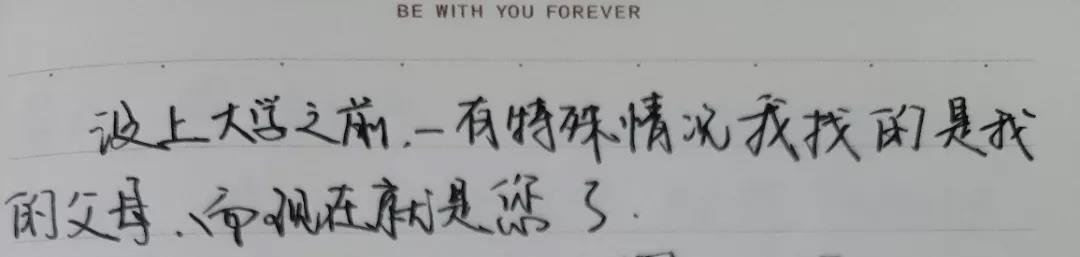 BE WITH YOU FOREVER
没上大学之前.一有特殊情况我找的是我
的父母、而现在就是您了.